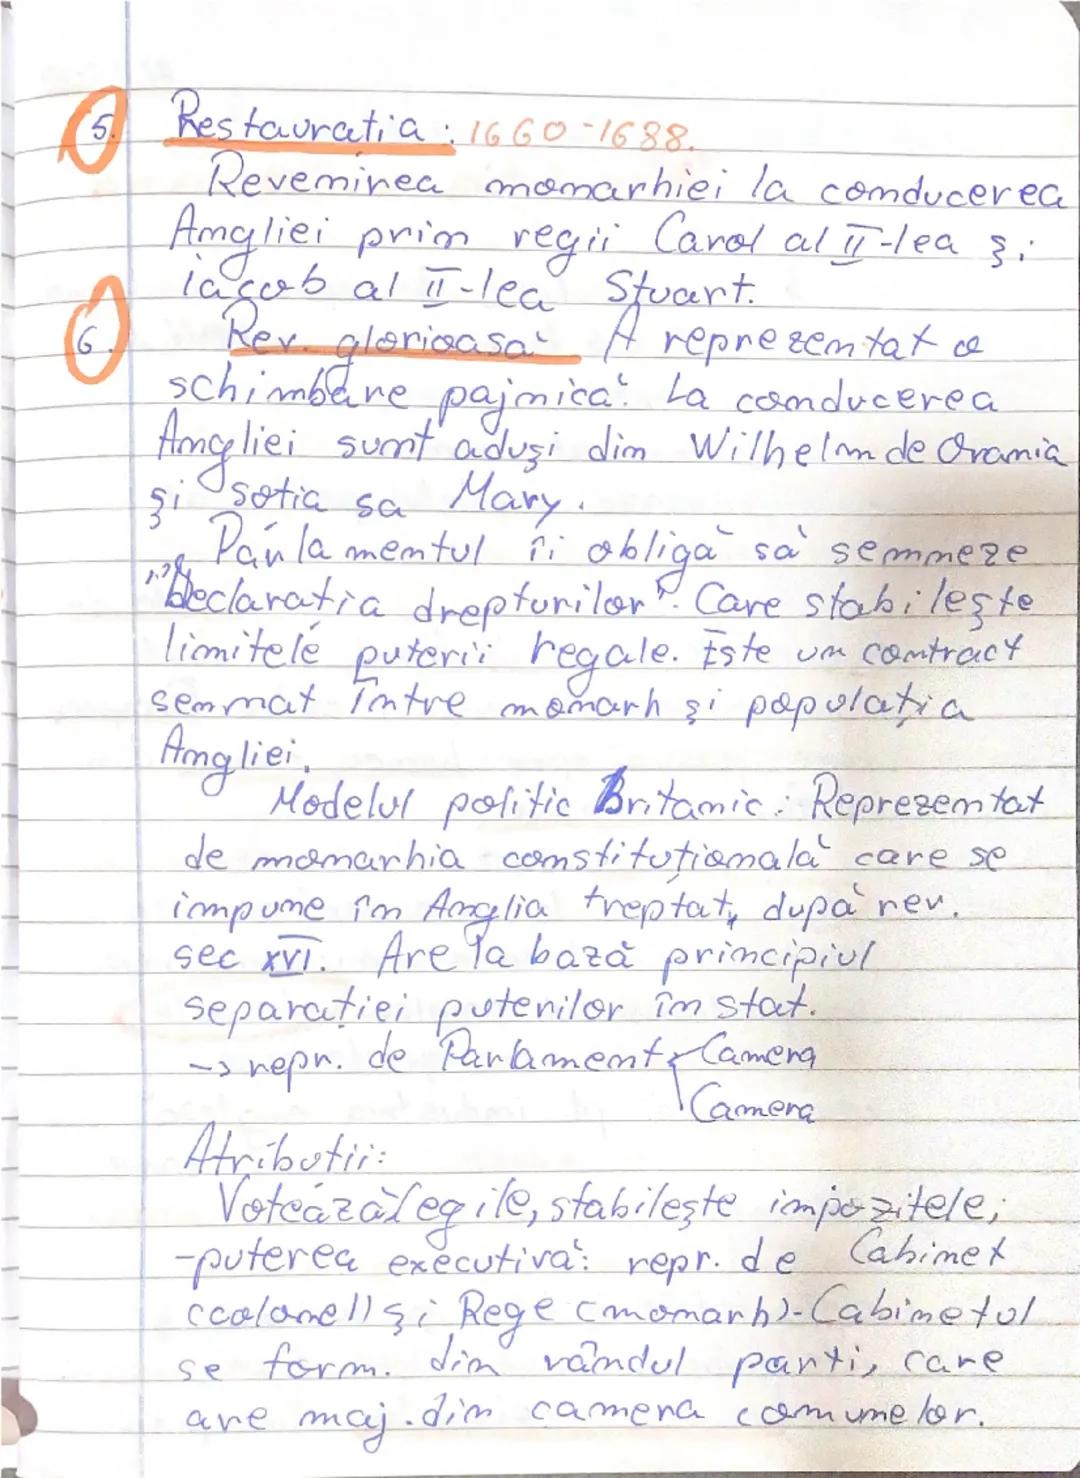 5. Restauratia: 1660-1688.
Revenirea monarhiei la conducerea
Angliei prin regii Carol al II-lea și
iacob al II-lea Stuart.
6. Rev. glorioasă A reprezentat o
schimbare pajnică: La conducerea
Angliei sunt aduși din Wilhelm de Orania
și sotia sa Mary.
Parlamentul îi obligă să semneze
"Declaratia drepturilor". Care stabilește
limitele puterii regale. Este un contract
semnat între monarh și populația
Angliei.
Modelul politic Britanic: Reprezentat
de monarhia constituțională care se
impune în Anglia treptat, după rev.
sec XVI. Are la bază principiul
separației puterilor în stat.
-> repr. de Parlament Camera
Camera
Atributii:
Votează legile, stabilește impozitele;
-puterea executivă: repr. de Cabinet
și Rege (monarh)-Cabinetul
se form. din rândul parti, care
are maj. din camera comunelor.